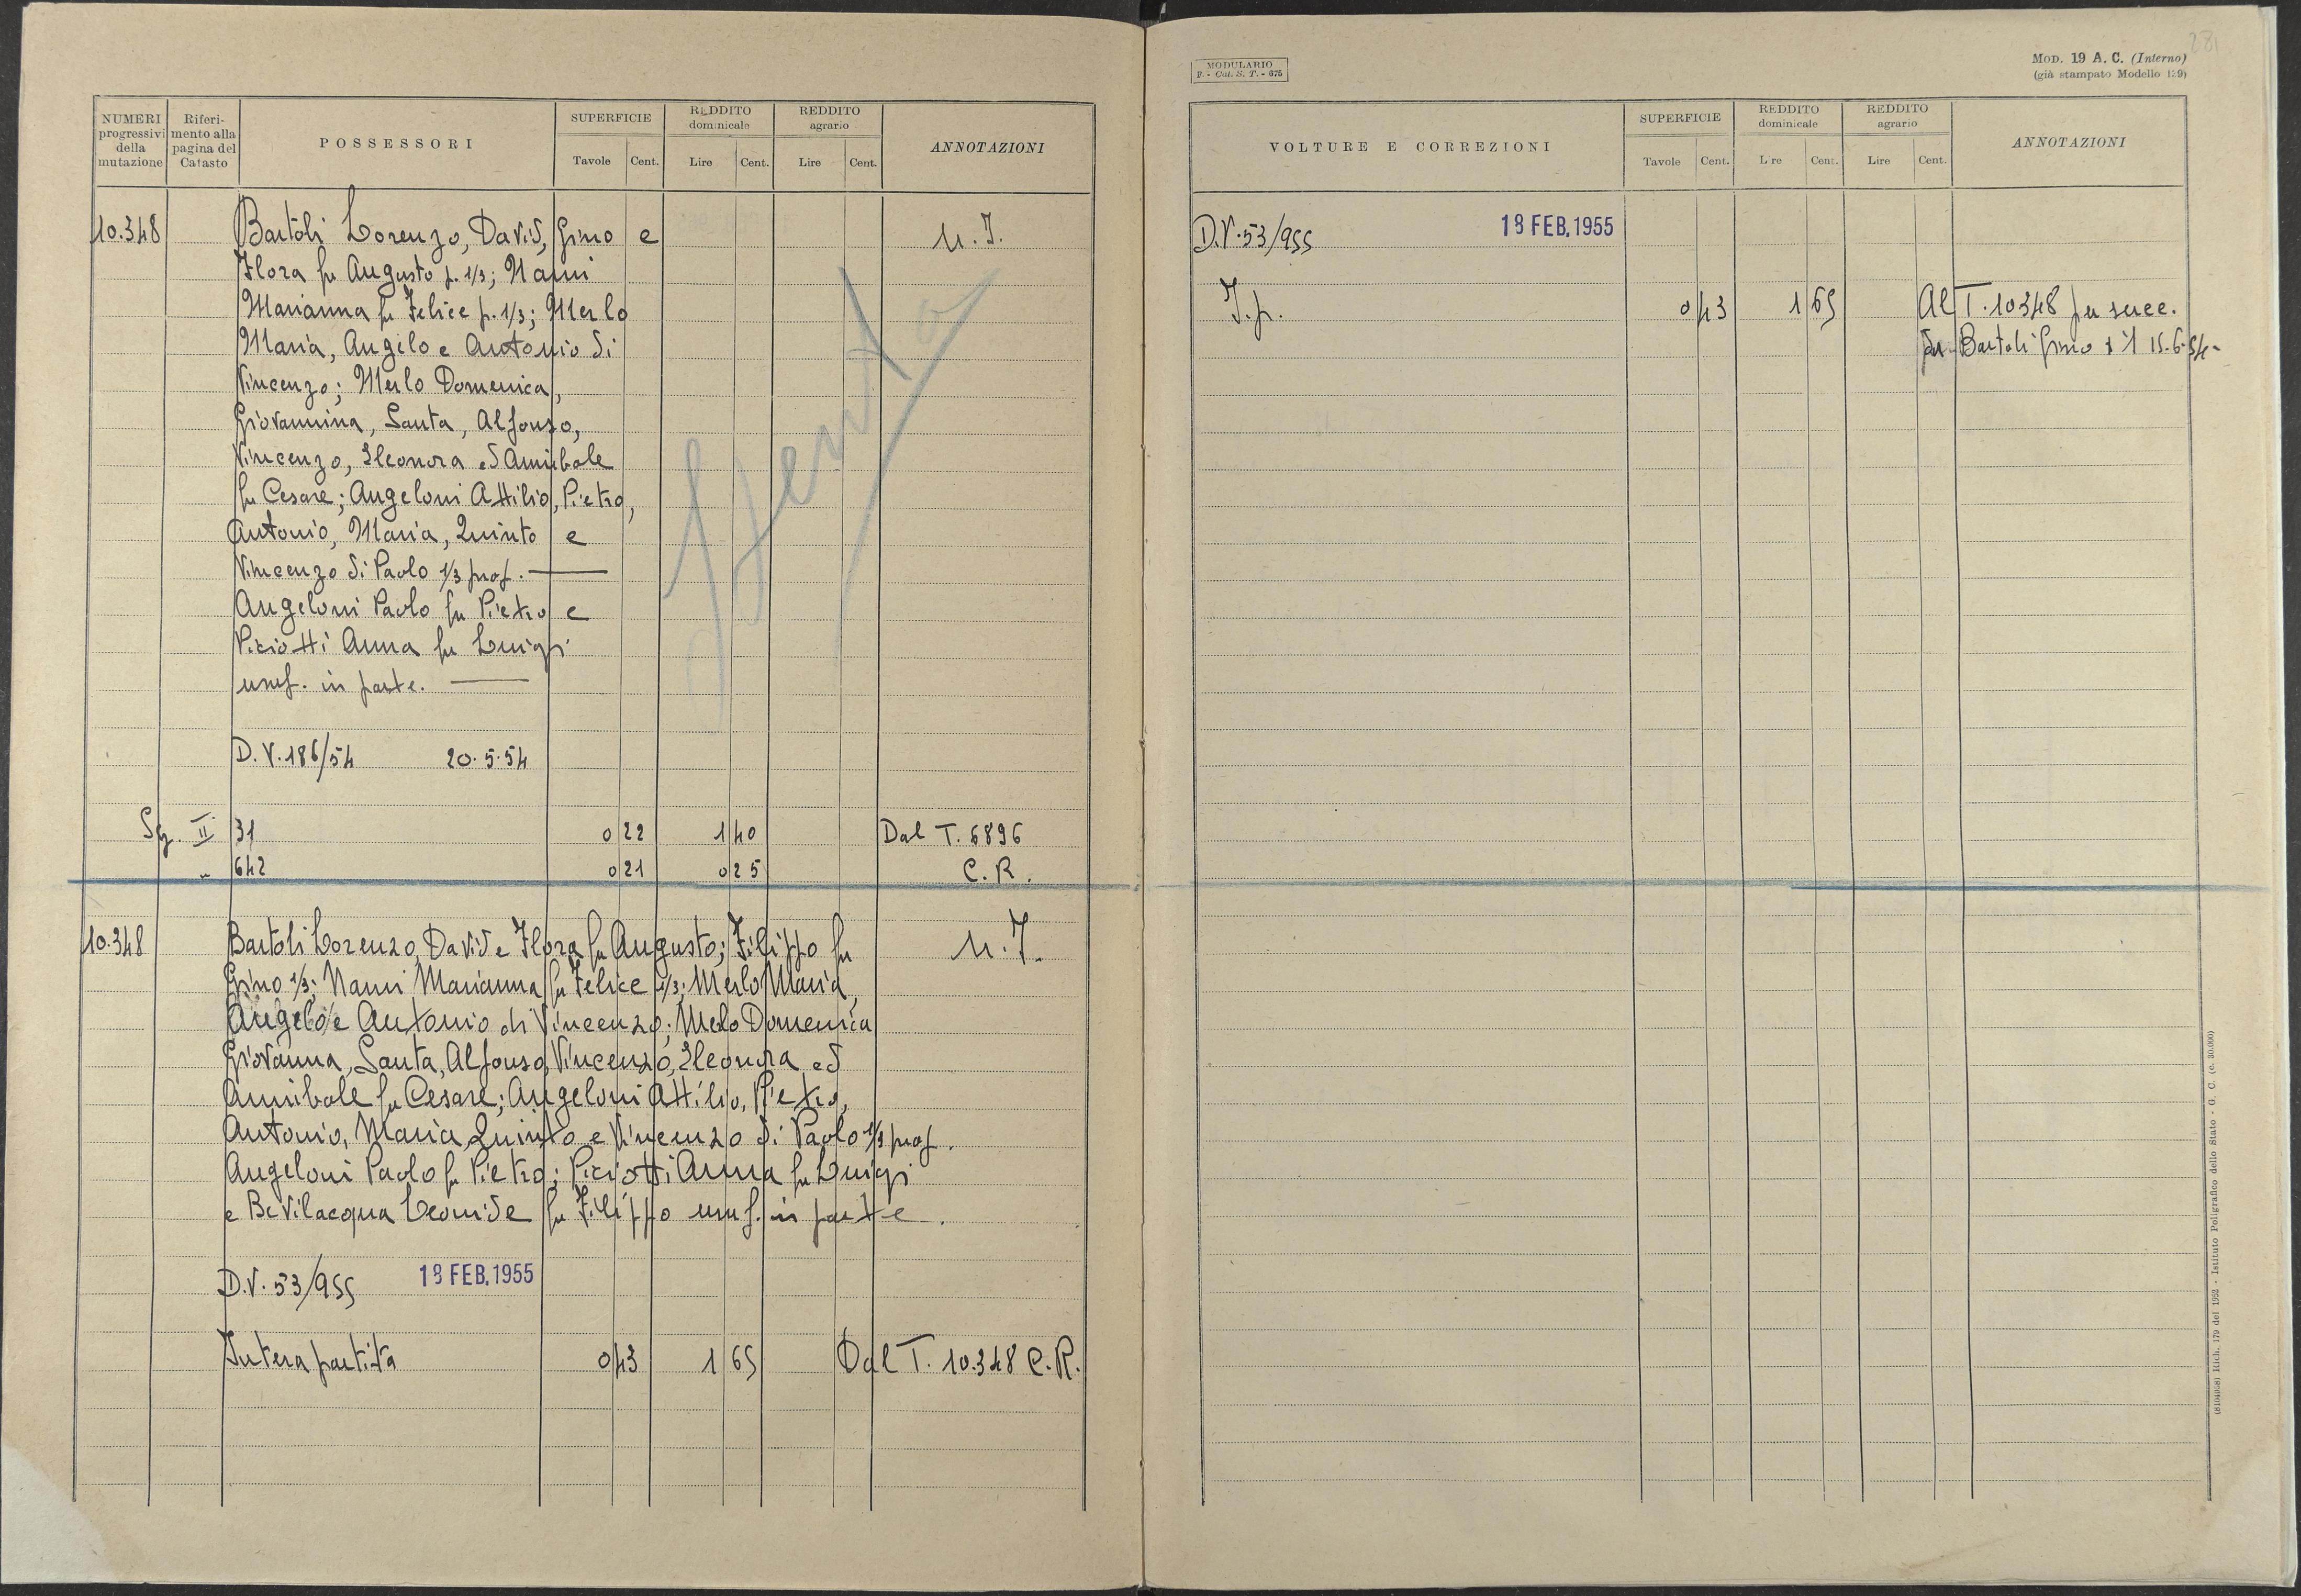 NUMERI progressivi della mutazione
Riferimento alla pagina del Catasto
POSSESSORI
SUPERFICIE
Tavole Cent.
REDDITO dominicale
Lire Cent.
REDDITO agrario
Lire Cent.
ANNOTAZIONI
10.348 Bartoli Lorenzo, David, Gino e U.I.
Flora fu Augusto p. 1/3; Nanni
Marianna fu Felice p. 1/3; Merlo
Maria, Angelo e Antonio di
Vincenzo; Merlo Domenica,
Giovannina, Santa, Alfonso,
Vincenzo, Eleonora ed Annibale
fu Cesare; Angeloni Attilio, Pietro,
Antonio, Maria, Quinto e
Vincenzo di Paolo 1/3 prof.
Angeloni Paolo fu Pietro e
Piciotti Anna fu Luigi
usuf. in parte.
D.V. 186/54 20.5.54
Sez. II 31 0 22 1 40 Dal T. 6896
" 642 0 21 0 25 C.R.
10.348 Bartoli Lorenzo, David e Flora fu Augusto; Filippo fu U.I.
Gino 1/3; Nanni Marianna fu Felice 1/3; Merlo Maria,
Angelo e Antonio di Vincenzo; Merlo Domenica
Giovanna, Santa, Alfonso, Vincenzo, Eleonora ed
Annibale fu Cesare; Angeloni Attilio, Pietro,
Antonio, Maria, Quinto e Vincenzo di Paolo 1/3 prof.
Angeloni Paolo fu Pietro; Piciotti Anna fu Luigi
e Bevilacqua Leonide fu Filippo usuf. in parte.
D.V. 53/955 18 FEB. 1955
Intera partita 0 43 1 65 Dal T. 10.348 C.R.
MODULARIO
F. - Cat. S. T. - 675
MOD. 19 A. C. (Interno)
(già stampato Modello 129)
VOLTURE E CORREZIONI
SUPERFICIE
Tavole Cent.
REDDITO dominicale
Lire Cent.
REDDITO agrario
Lire Cent.
ANNOTAZIONI
D.V. 53/955 18 FEB. 1955
I.p. 0 43 1 65 Al T. 10348 per succ.
di Bartoli Gino † il 15.6.54-
Rich. 179 del 1952 - Istituto Poligrafico dello Stato - G. C. (c. 30.000)